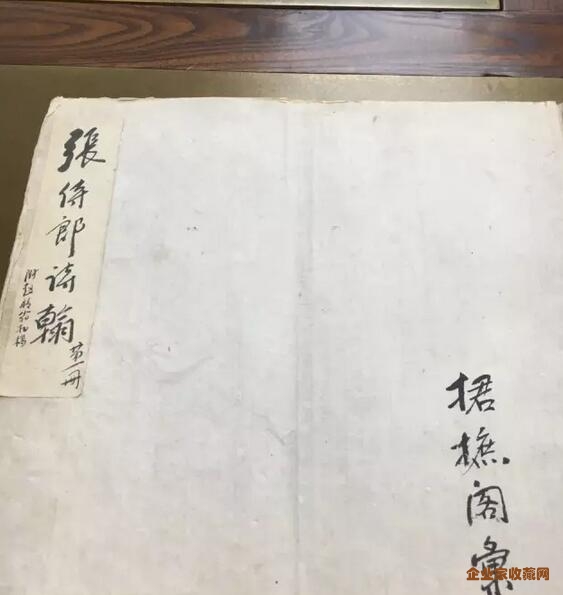 張侍郎诗翰
第一册
捃摭阁彙
企业家收藏网